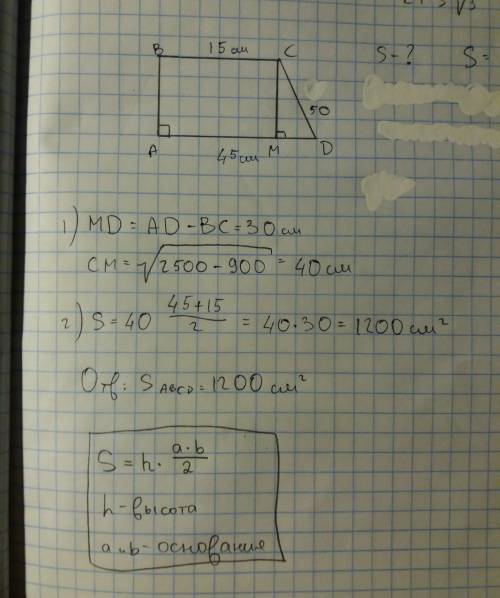 B 15 см C S-? S=
50
A 45 см M D
1) MD = AD - BC = 30 см
CM = √2500 - 900 = 40 см
2) S = 40 45+15/2 = 40·30 = 1200 см²
Отв: S ABCD = 1200 см²
S = h · a·b/2
h - высота
a и b - основания